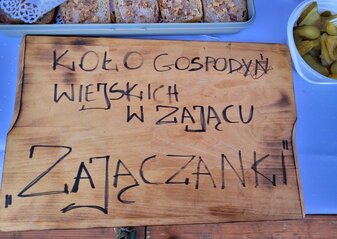 KOŁO GOSPODYŃ
WIEJSKICH
W ZAJĄCU
„ZAJĄCZANKI"